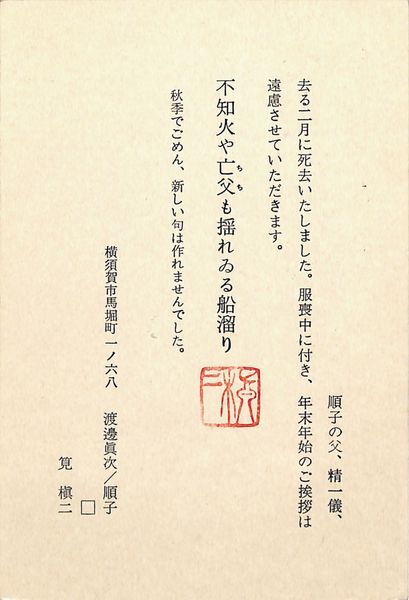 順子の父、精一儀、
去る二月に死去いたしました。服喪中に付き、年末年始のご挨拶は
遠慮させていただきます。
不知火や亡父も揺れゐる船溜り
ちち
秋季でごめん、新しい句は作れませんでした。
横須賀市馬堀町一ノ六八
渡邊眞次／順子
□
筧槇二